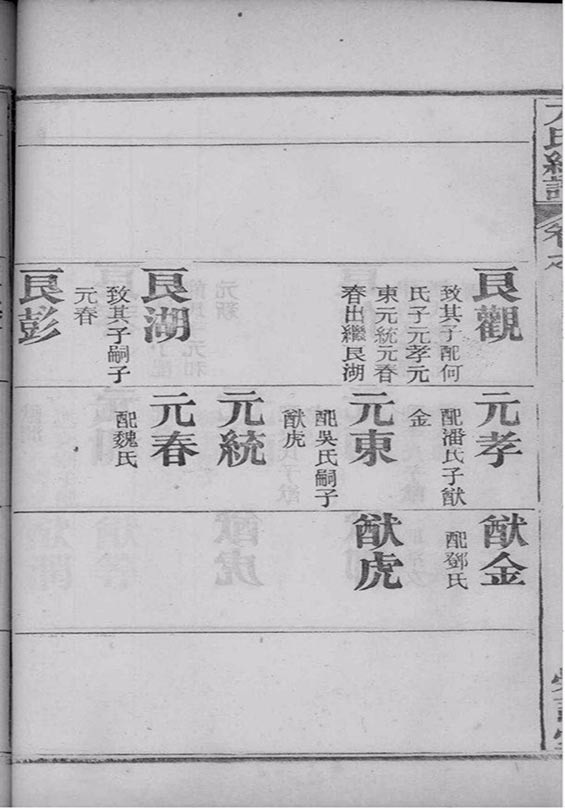 艮觀
致其子配何
氏子元孝元
東元統元春
春出繼艮湖
艮湖
致其子嗣子
元春
艮彭
元孝
配潘氏子猷
金
元東
配吳氏嗣子
猷虎
元統
元春
配魏氏
猷金
配鄧氏
猷虎